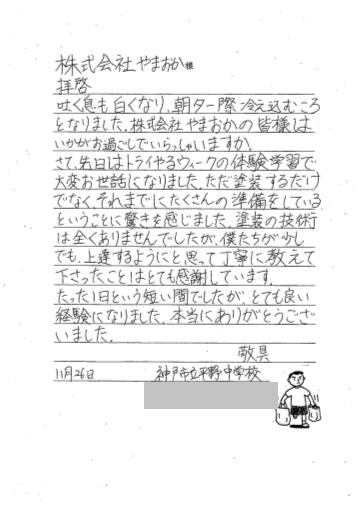 株式会社やまおか様
拝啓
吐く息も白くなり、朝夕一際冷え込むころ
となりました。株式会社やまおかの皆様は
いかがお過ごしでいらっしゃいますか。
さて、先日はトライやるウィークの体験学習で
大変お世話になりました。ただ塗装するだけ
でなく、それまでにたくさんの準備をしている
ということに驚きを感じました。塗装の技術
は全くありませんでしたが、僕たちが少し
でも、上達するようにと思って丁寧に教えて
下さったことはとても感謝しています。
たった1日という短い間でしたが、とても良い
経験になりました。本当にありがとうござ
いました。
敬具
11月26日 神戸市立平野中学校